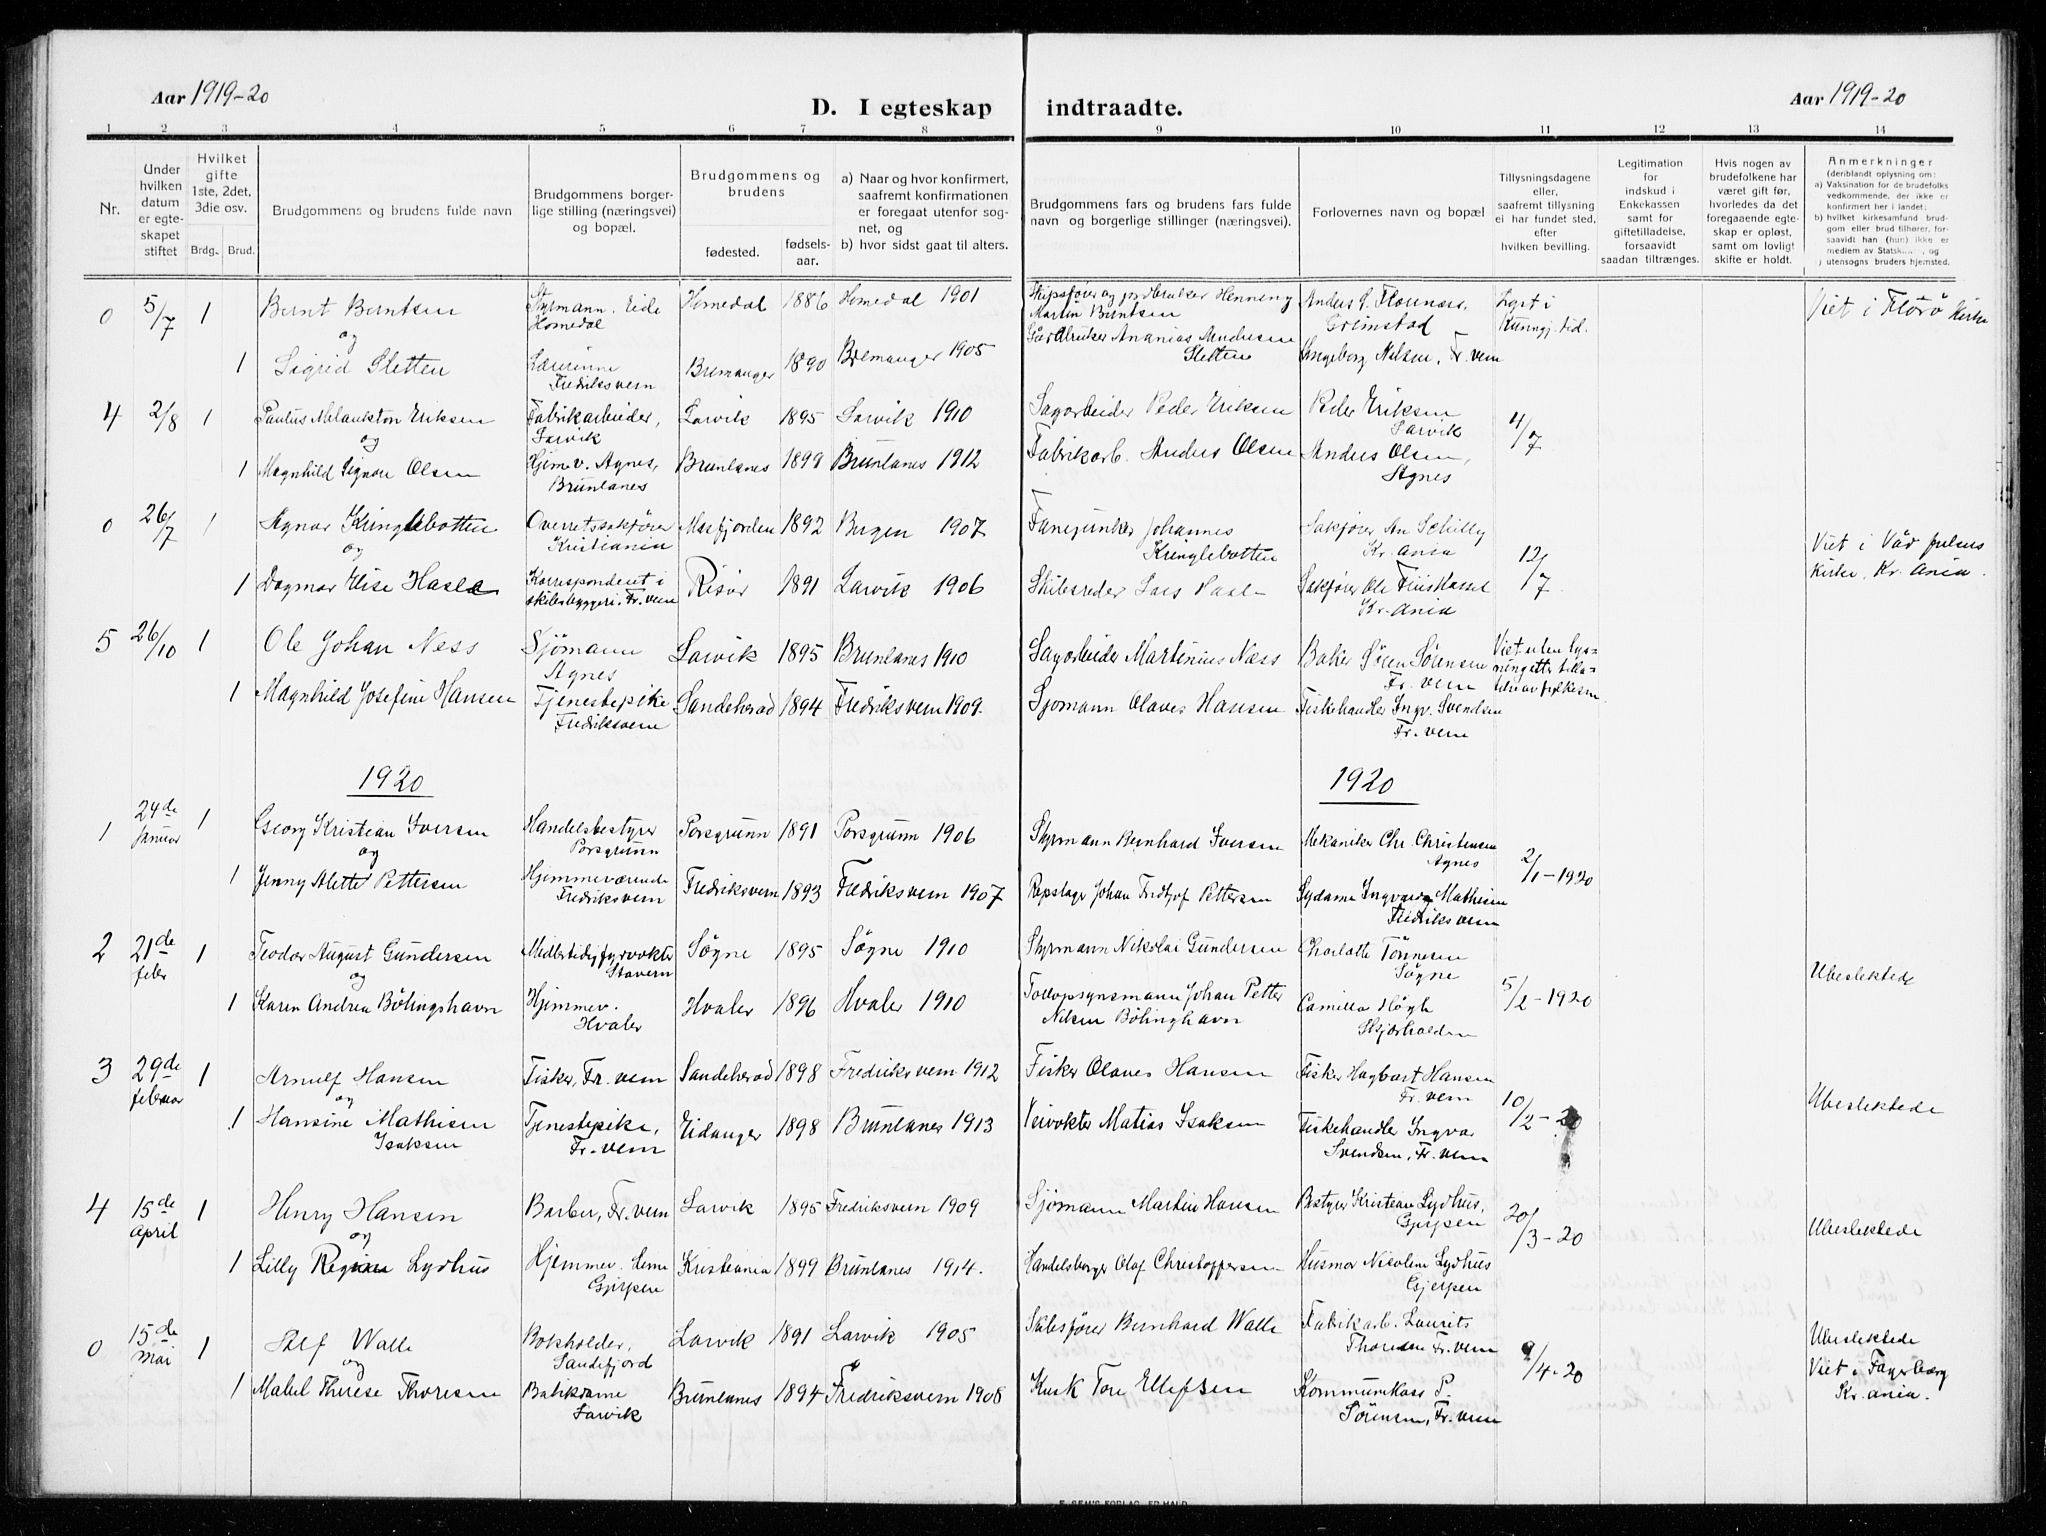 Aar 1919-20
D. I egteskap indtraadte.
Aar 1919-20
1 2 3 4 5 6 7 8 9 10 11 12 13 14
Nr.
Under hvilken datum er egteskapet stiftet
Hvilket gifte 1ste, 2det, 3die osv.
Brdg. Brud.
Brudgommens og brudens fulde navn
Brudgommens borgerlige stilling (næringsvei) og bopæl.
Brudgommens og brudens
fødested. fødselsaar.
a) Naar og hvor konfirmert, saafremt konfirmationen er foregaat utenfor sognet, og
b) hvor sidst gaat til alters.
Brudgommens fars og brudens fars fulde navn og borgerlige stillinger (næringsvei).
Forlovernes navn og bopæl
Tillysningsdagene eller, saafremt tillysning ei har fundet sted, efter hvilken bevilling.
Legitimation for indskud i Enkekassen samt for giftetilladelse, forsaavidt saadan tiltrænges.
Hvis nogen av brudefolkene har været gift før, hvorledes da det foregaaende egteskap er opløst, samt om lovligt skifte er holdt.
Anmerkninger
(deriblandt oplysning om:
a) Vaksination for de brudefolks vedkommende, der ikke er konfirmert her i landet;
b) hvilket kirkesamfund brudgom eller brud tilhører, forsaavidt han (hun) ikke er medlem av Statsk , og
) utensogns bruders hjemsted.
0 5/7 1 Bernt Berntsen Styrmann. Eide Homedal Homedal 1886 Homedal 1901 Skipsfører og jordbruker Henning Martin Berntsen Anders G. Grimstad Lyst i Kunngj. tid. Viet i Florø Kirke
og
1 Sigrid Sletten Lærerinne Fredriksvern Bremanger 1890 Bremanger 1905 Gårdbruker Ananias Andersen Sletten Ingeborg Nilsen, Fr. vern
4 2/8 1 Paulus Melankton Eriksen Fabrikarbeider, Larvik Larvik 1895 Larvik 1910 Sagarbeider Peder Eriksen Peder Eriksen Larvik 4/7
og
1 Magnhild Signore Olsen Hjemv. Agnes, Brunlanes Brunlanes 1899 Brunlanes 1912 Fabrikarb. Anders Olsen Anders Olsen, Agnes
0 26/7 1 Agnar Kringlebotten Overretssakfører Kristiania Masfjorden 1892 Bergen 1907 Fanejunker Johannes Kringlebotten Sakfører Kr. ania 12/7 Viet i Vår frelsers kirke, Kr. ania.
og
1 Dagmar Elise Hasle Korrespondent i skibsbyggeri. Fr. vern Risør 1891 Larvik 1906 Skibsreder Lars Sakfører Ole Kr. ania
5 26/10 1 Ole Johan Ness Sjømann Agnes Larvik 1895 Brunlanes 1910 Sagarbeider Martinius Næss Baker Søren Sørensen Fr. vern Viet uten lysning etter tillatelse av fylkesm
1 Magnhild Josefine Hansen Tjenestepike Fredriksvern Sandeherad 1894 Fredriksvern 1909. Sjømann Olaves Hansen Fiskehandler Ingv. Svendsen Fr. vern
1920 1920
1 24de Januar 1 Georg Kristian Iversen Handelsbestyrer Porsgrunn Porsgrunn 1891 Porsgrunn 1906 Styrmann Bernhard Iversen Mekaniker Chr. Christensen Agnes 2/1-1920
og
1 Jenny Alette Pettersen Hjemmeværende Fredriksvern Fredriksvern 1893 Fredriksvern 1907 Repslager Johan Fridtjof Pettersen Sydame Mathisen Fredriksvern
2 21de febr 1 Teodor August Gundersen Midlertidig fyrvokter Stavern Søgne 1895 Søgne 1910 Styrmann Nikolai Gundersen Charlotte Tønnesen Søgne 5/2-1920 Ubeslektede
og
1 Karen Andrea Bølingshavn Hjemmev. Hvaler Hvaler 1896 Hvaler 1910 Tollopsynsmann Johan Petter Nilsen Bølinghavn Camilla Høgh Skjærhalden
3 29de februar 1 Arnulf Hansen Fisker, Fr. vern Sandeherad 1898 Fredriksvern 1912 Fisker Olaves Hansen Fisker Hagbart Hansen Fr. vern 10/2-20 Ubeslektede
og
1 Hansine Mathisen Isaksen Tjenestepike, Fr. vern Eidanger 1898 Brunlanes 1913 Veivokter Matias Isaksen Fiskehandler Ingvar Svendsen, Fr. vern
4 15de April 1 Henry Hansen Barber, Fr. vern Larvik 1895 Fredriksvern 1909 Sjømann Martin Hansen Bestyrer Kristian Lydhus, Gjerpen 20/3-20 Ubeslektede
og
1 Lilly Regine Lydhus Hjemmev. Gjerpen Kristiania 1899 Brunlanes 1914. Handelsborger Olaf Christoffersen Husmor Nicoline Lydhus Gjerpen
0 15de Mai 1 Alf Walle Bokholder, Sandefjord Larvik 1891 Larvik 1905 Skibsfører Bernhard Walle Fabrikarb. Laurits Thoresen Fr. vern 9/4-20 Ubeslektede Viet i Fagerborg Kr. ania.
og
1 Mabel Therese Thoresen Butikdame Larvik Brunlanes 1894 Fredriksvern 1908 Kusk Tore Ellefsen Kommunekass P. Sørensen, Fr. vern